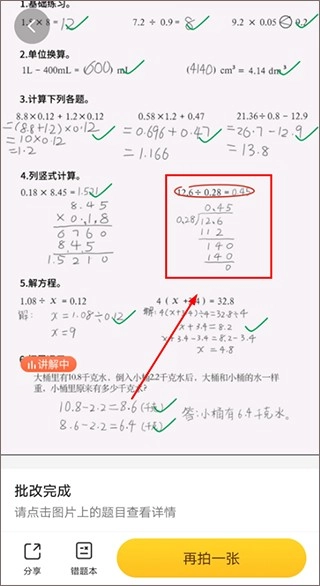 1.基础练习。
× 8=12
7.2 ÷ 0.9= 8
9.2 × 0.05 < 9.2
2.单位换算。
1L - 400mL=(600) mL
(4140) cm³ = 4.14 dm³
3.计算下列各题。
8.8×0.12 + 1.2×0.12
0.58×1.2 + 0.47
21.36÷0.8 - 12.9
=(8.8+1.2)×0.12
=0.696+0.47
=26.7-12.9
=10×0.12
=1.166
=13.8
=1.2
4.列竖式计算。
0.18 × 8.45=1.521
12.6÷0.28=0.45
8.4 5
× 0.1 8
6 7 6 0
8 4 5
1.5 2 1 0
0.45
0.28 12.6
112
140
140
0
5.解方程。
1.08 ÷ x = 0.12
4 ( x +3.4) = 32.8
解: x=1.08÷0.12
x=9
解:4(x+3.4)÷4=32.8÷4
x+3.4=8.2
x+3.4-3.4=8.2-3.4
x=4.8
讲解中
大桶里有10.8千克水，倒入小桶2.2千克水后，大桶和小桶的水一样
重，小桶里原来有多少千克水?
10.8-2.2=8.6(千克)
8.6-2.2=6.4(千克)
答:小桶有6.4千克水。
批改完成
请点击图片上的题目查看详情
分享
错题本
再拍一张